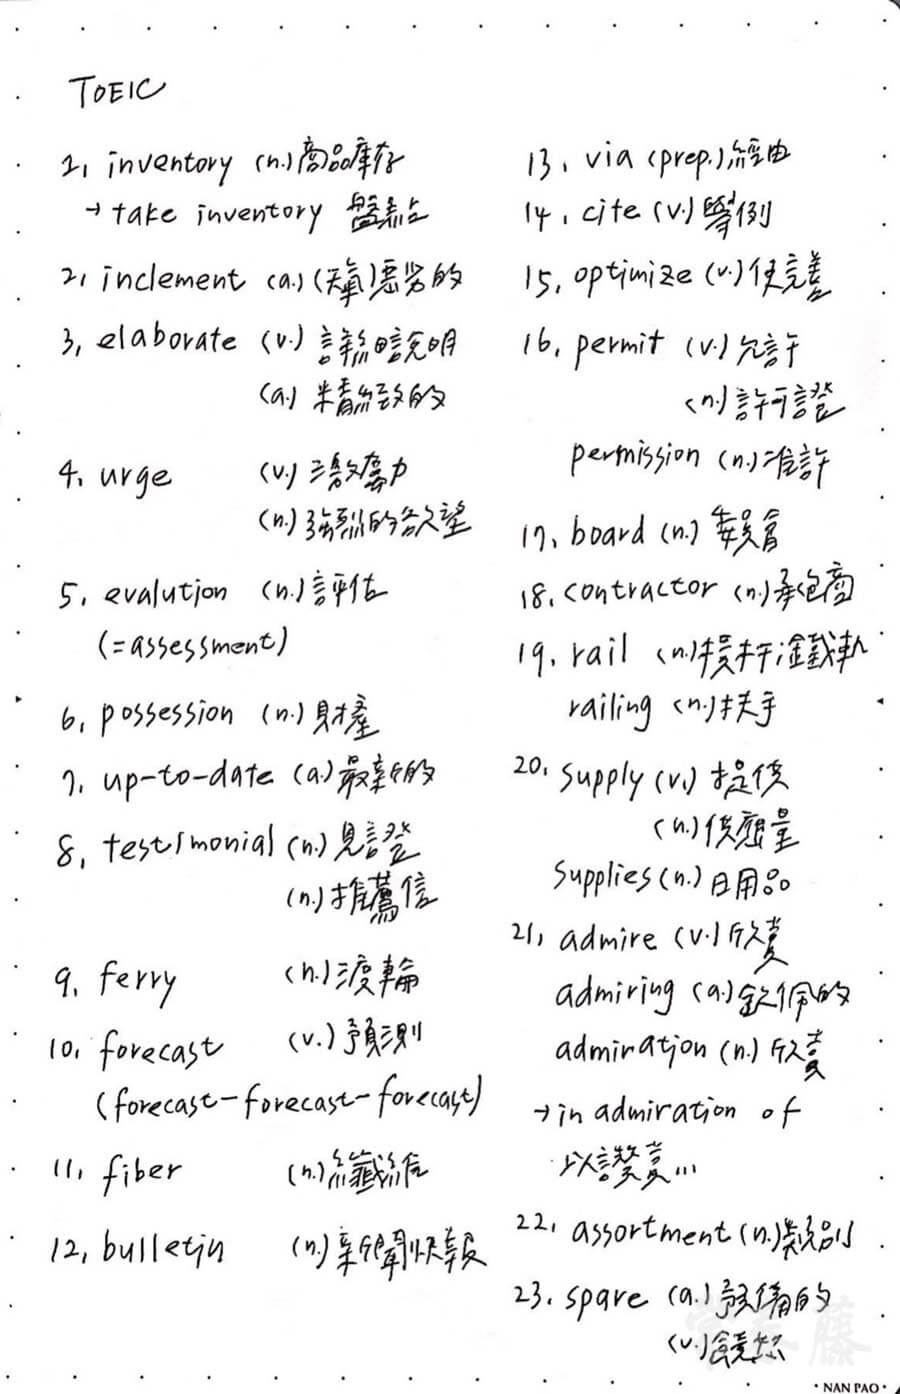 TOEIC
1, inventory (n.)商品庫存
→ take inventory 盤點
2, inclement (a.)(天氣)惡劣的
3, elaborate (v.) 詳細說明
(a.) 精緻的
4, urge (v.) 激勵
(n.) 強烈的慾望
5, evalution (n.) 評估
(=assessment)
6, possession (n.) 財產
7, up-to-date (a.) 最新的
8, testimonial (n.) 見證
(n.) 推薦信
9, ferry (n.) 渡輪
10, forecast (v.) 預測
(forecast-forecast-forecast)
11, fiber (n.) 纖維
12, bulletin (n.) 新聞快報
13, via (prep.) 經由
14, cite (v.) 舉例
15, optimize (v.) 使完善
16, permit (v.) 允許
(n.) 許可證
permission (n.) 准許
17, board (n.) 委員會
18, contractor (n.) 承包商
19, rail (n.) 橫杆;鐵軌
railing (n.) 扶手
20, supply (v.) 提供
(n.) 供應量
supplies (n.) 日用品
21, admire (v.) 欣賞
admiring (a.) 欽佩的
admiration (n.) 欣賞
→ in admiration of
以讚賞...
22, assortment (n.) 類別
23, spare (a.) 預備的
(v.) 饒恕
常春藤
· NAN PAO ·